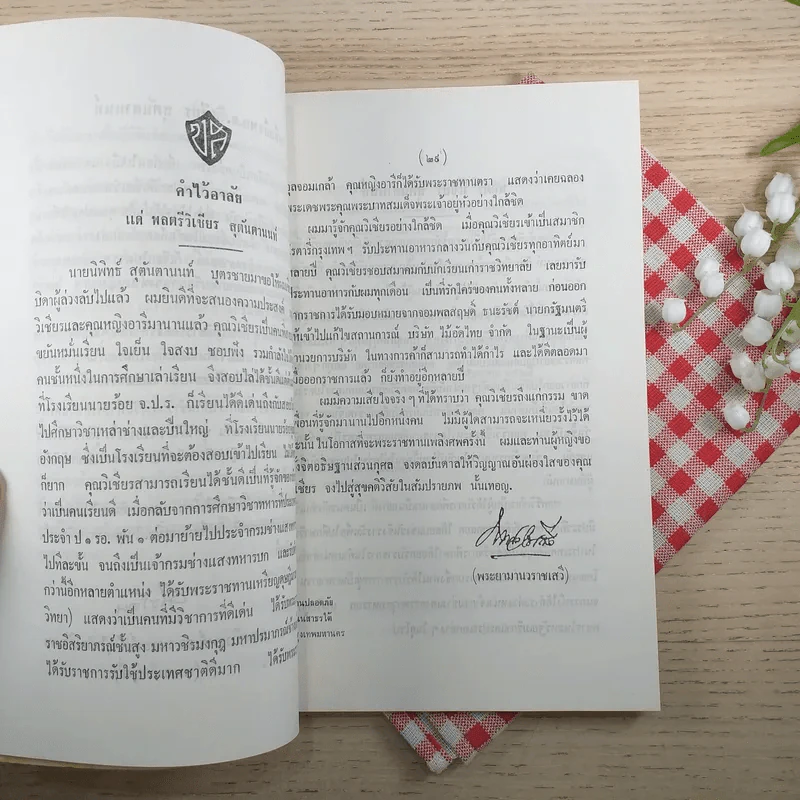 คำไว้อาลัย
แด่ พลตรีวิเชียร สุตันตานนท์
นายนิพิทธ์ สุตันตานนท์ บุตรชายมาขอให้
บิดาผู้ล่วงลับไปแล้ว ผมยินดีที่จะสนองความประสงค์
วิเชียรและคุณหญิงอารีมานานแล้ว คุณวิเชียรเป็นคน
ขยันหมั่นเรียน ใจเย็น ใจสงบ ชอบพึง รวมกำลังใจ
คนชั้นหนึ่งในการศึกษาเล่าเรียน จึงสอบไล่ได้ชั้นดี
ที่โรงเรียนนายร้อย จ.ป.ร. ก็เรียนได้ดีเด่นถึงกับ
ไปศึกษาวิชาเหล่าช่างและปืนใหญ่ ที่โรงเรียนนายร้อย
อังกฤษ ซึ่งเป็นโรงเรียนที่จะต้องสอบเข้าไปเรียน
ก็ยาก คุณวิเชียรสามารถเรียนได้ชั้นดีเป็นที่รู้จัก
ว่าเป็นคนเรียนดี เมื่อกลับจากการศึกษาวิชาทหาร
ประจำ ป ๑ รอ. พัน ๑ ต่อมาย้ายไปประจำกรมช่างแสง
ไปทีละขั้น จนถึงเป็นเจ้ากรมช่างแสงทหารบก และ
กว่านี้อีกหลายตำแหน่ง ได้รับพระราชทานเหรียญดุษฎี
วิทยา) แสดงว่าเป็นคนที่มีวิชาการที่ดีเด่น ได้รับ
ราชอิสริยาภรณ์ชั้นสูง มหาวชิรมงกุฎ มหาปรมาภรณ์
ได้รับราชการรับใช้ประเทศชาติดีมาก ได้รับ
(๒๙)
กุลจอมเกล้า คุณหญิงอารีก็ได้รับพระราชทานตรา แสดงว่าเคยฉลอง
พระเดชพระคุณพระบาทสมเด็จพระเจ้าอยู่หัวอย่างใกล้ชิด
ผมมารู้จักคุณวิเชียรอย่างใกล้ชิด เมื่อคุณวิเชียรเข้าเป็นสมาชิก
ตารี่กรุงเทพฯ รับประทานอาหารกลางวันกับคุณวิเชียรทุกอาทิตย์มา
ลายปี คุณวิเชียรชอบสมาคมกับนักเรียนเก่าราชวิทยาลัย เลยมารับ
ประทานอาหารกับผมทุกเดือน เป็นที่รักใคร่ของคนทั้งหลาย ก่อนออก
ากราชการได้รับมอบหมายจากจอมพลสฤษดิ์ ธนะรัชต์ นายกรัฐมนตรี
ห้เข้าไปแก้ไขสถานการณ์ บริษัท ไม้อัดไทย จำกัด ในฐานะเป็นผู้
านวยการบริษัท ในทางการค้าก็สามารถทำได้กำไร และได้ติดลอดมา
มื่อออกราชการแล้ว ก็ยังทำอยู่อีกหลายปี
ผมมีความเสียใจจริง ๆ ที่ได้ทราบว่า คุณวิเชียรถึงแก่กรรม ขาด
พื่อนที่รู้จักมานานไปอีกหนึ่งคน ไม่มีผู้ใดสามารถจะเหนี่ยวรั้งไว้ได้
ะนั้น ในโอกาสที่จะพระราชทานเพลิงศพครั้งนี้ ผมและท่านผู้หญิงขอ
ั้งจิตอธิษฐานส่วนกุศล จงดลบันดาลให้วิญญาณอันผ่องใสของคุณ
เชียร จงไปสู่สุขคติวิสัยในสัมปรายภพ นั้นเทอญ.
(พระยามานวราชเสวี)
านปลอดภัย
นสาธรใต้
รุงเทพมหานคร